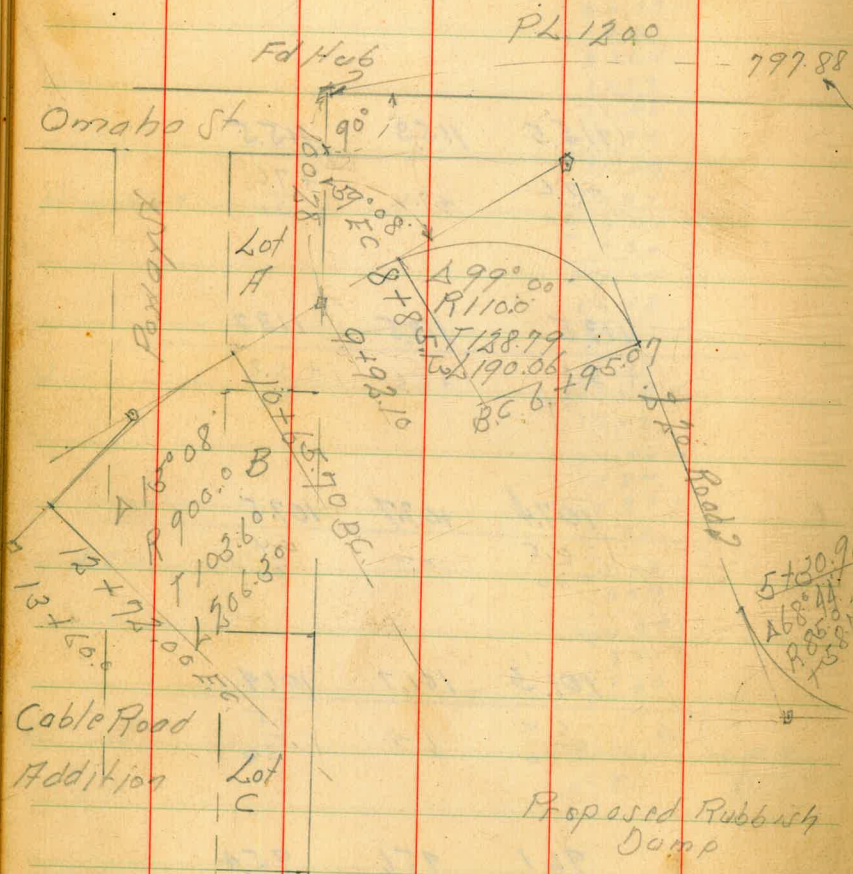 PL 1200
Fd Hub
797.88
Omaha St
90°
100.28
59°08'
E.C.
8+85.13
Lot
A
Δ 99°00'
R 110.0
T 128.79
L 190.06
B.C. 6+95.07
9+92.10
10+65.70 B.C.
B
Δ 13°08'
R 900.0
T 103.60
L 206.30
12+72.00 E.C.
13+60.0
Road
5+30.9
Δ 68°44'
R 85.0
T 58.
Cable Road
Addition
Lot
C
Proposed Rubbish
Dump